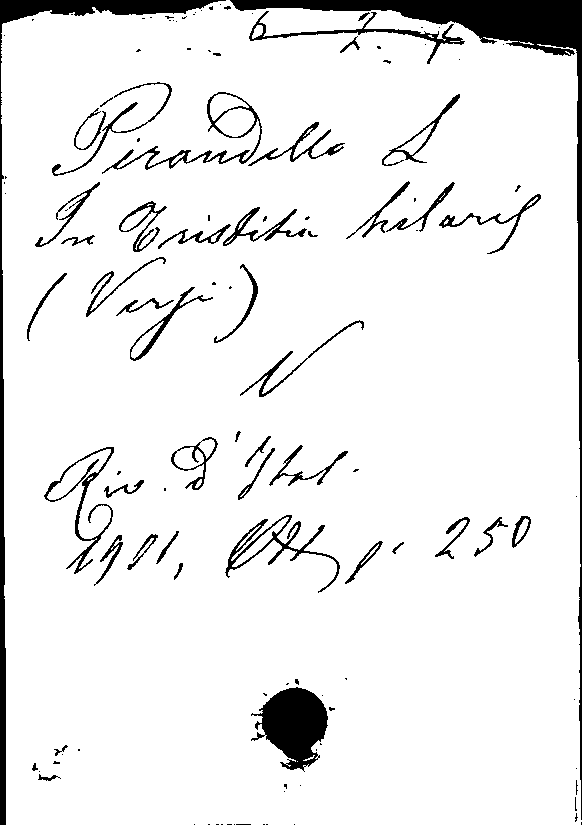 6 2. 4
Pirandello L
In Tristitia hilaris
(Versi)
N
Riv. d'Ital.
1901, Ott, p. 250